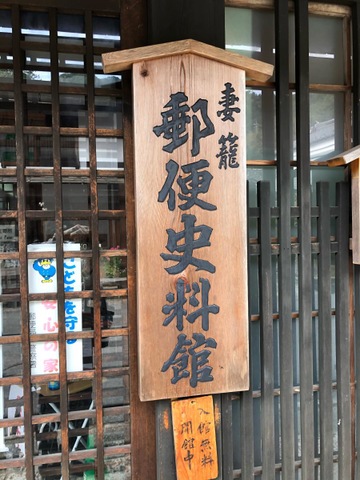 妻籠
郵便史料館
入館無料
開館中
こどもを守る
安心の家